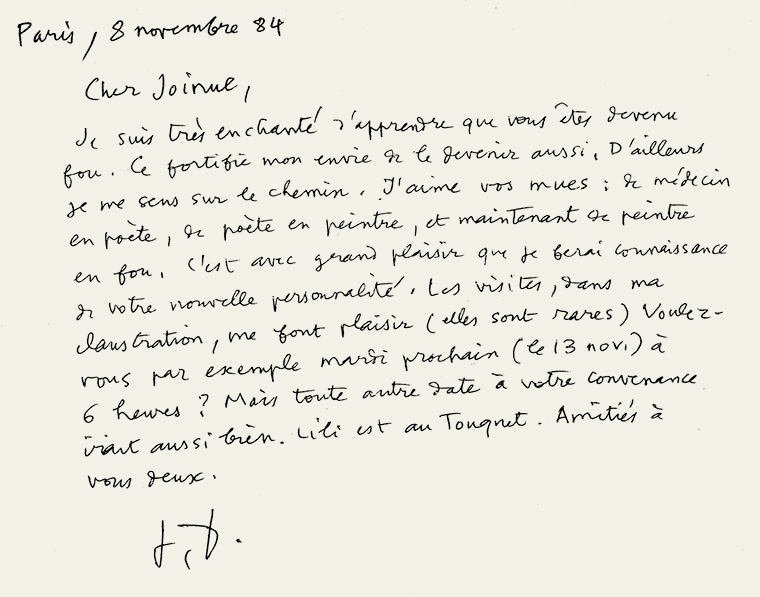 Paris, 8 novembre 84
Cher Joinul,
Je suis très enchanté d'apprendre que vous êtes devenu
fou. Ce fortifie mon envie de le devenir aussi. D'ailleurs
je me sens sur le chemin. J'aime vos mues : de médecin
en poète, de poète en peintre, et maintenant de peintre
en fou. C'est avec grand plaisir que je ferai connaissance
de votre nouvelle personnalité. Les visites, dans ma
claustration, me font plaisir (elles sont rares) Voulez-
vous par exemple mardi prochain (le 13 nov.) à
6 heures ? Mais toute autre date à votre convenance
irait aussi bien. Lili est au Touquet. Amitiés à
vous deux.
J.D.